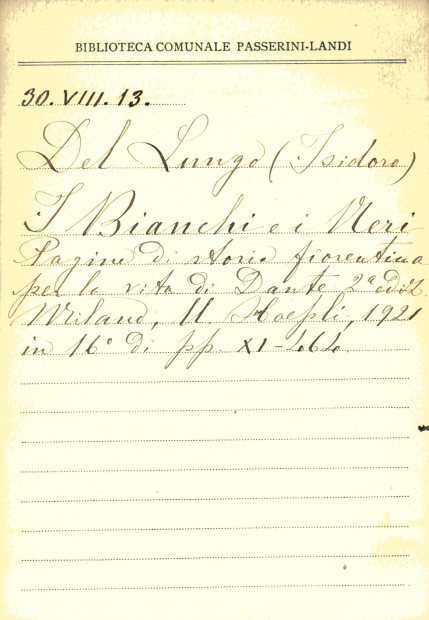 BIBLIOTECA COMUNALE PASSERINI-LANDI
30.VIII.13.
Del Lungo (Isidoro)
I Bianchi e i Neri
Pagine di storia fiorentina
per la vita di Dante 2ª ediz.
Milano, U. Hoepli, 1921
in 16° di pp. XI-464.